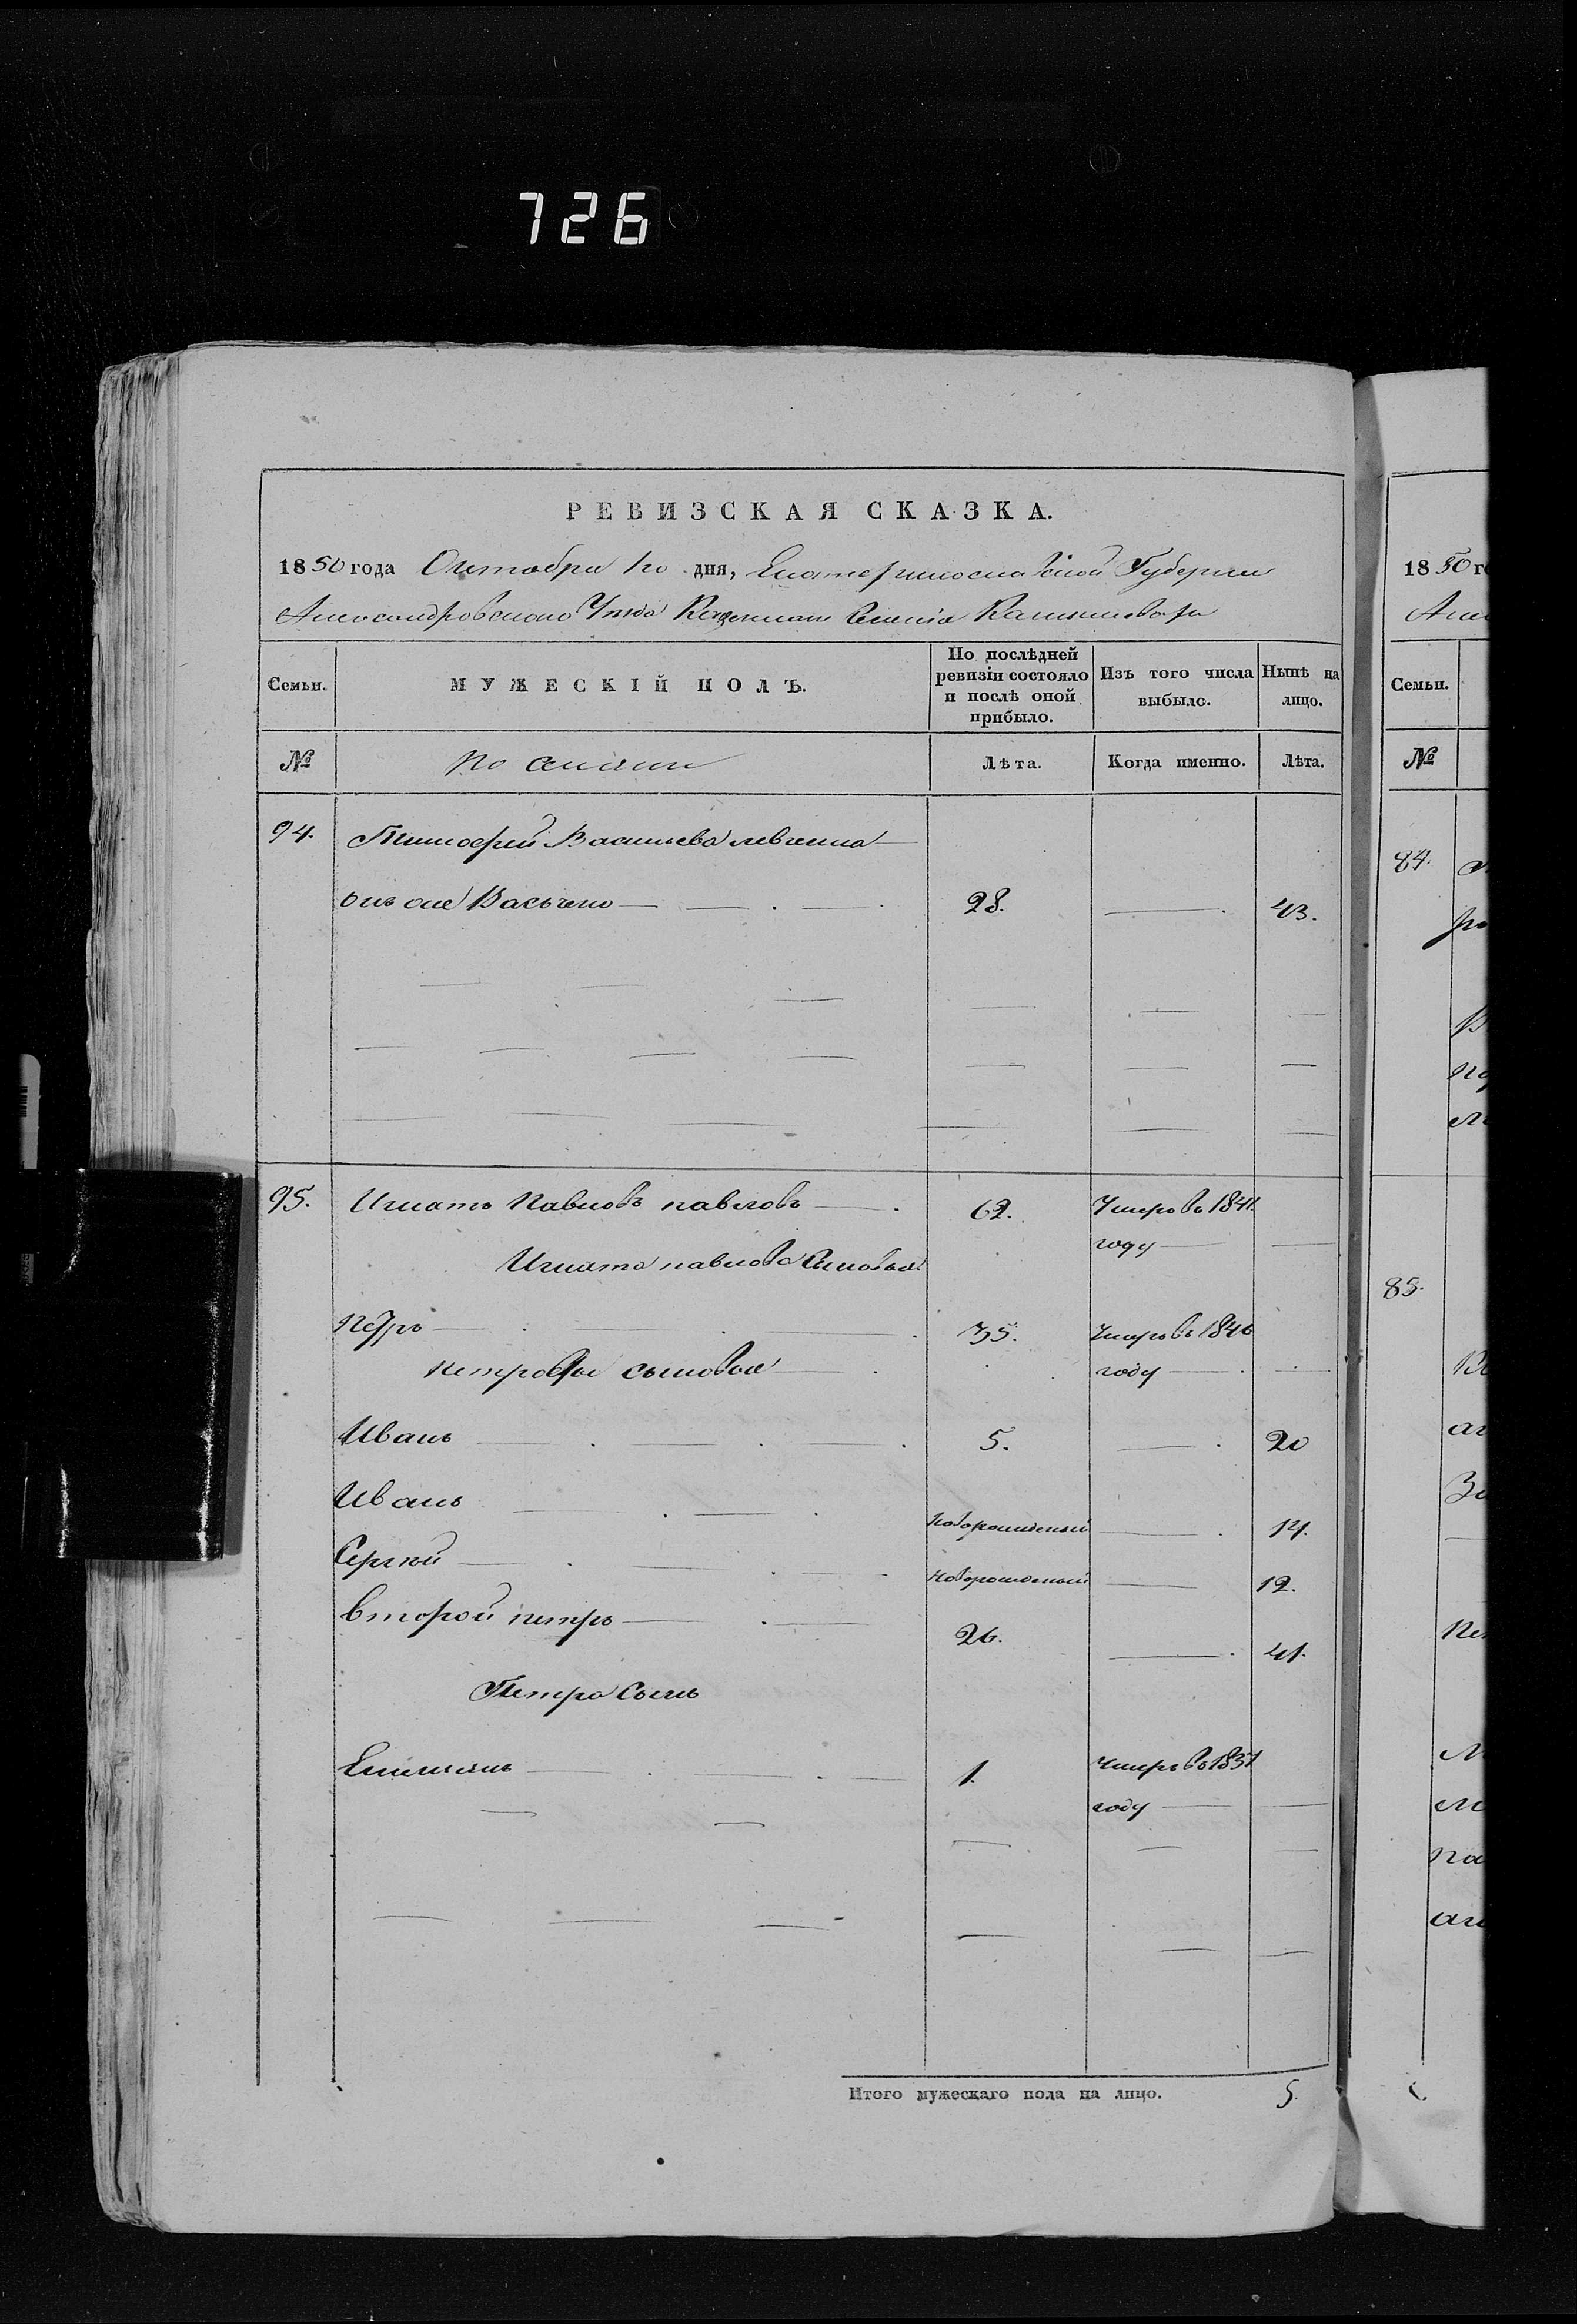 726
РЕВИЗСКАЯ СКАЗКА.
1850 года Октября 10 дня, Екатеринославской Губернии
Александровского Уезда Казенного Селения
Семьи.
МУЖЕСКІЙ ПОЛЪ.
По послѣдней ревизіи состояло и послѣ оной прибыло.
Изъ того числа выбыло.
Нынѣ на лицо.
№
Лѣта.
Когда именно.
Лѣта.
94. Тимофей Васильева левченка
онъ же Васьченко 28. 43.
95. Игнатъ Павловъ павловъ 62. Умеръ въ 1841.
году
Игната павлова Сыновья
Петръ 35. Умеръ въ 1846
Петровы сыновья году
Иванъ 5. 20
Иванъ Новорожденый 14.
Сергѣй Новорожденый 12.
второй петръ 26. 41.
Петра Сынъ
Емельянъ 1. Умеръ въ 1837
году
Итого мужескаго пола на лицо. 5.
1850 го
№
Семьи.
84.
85.